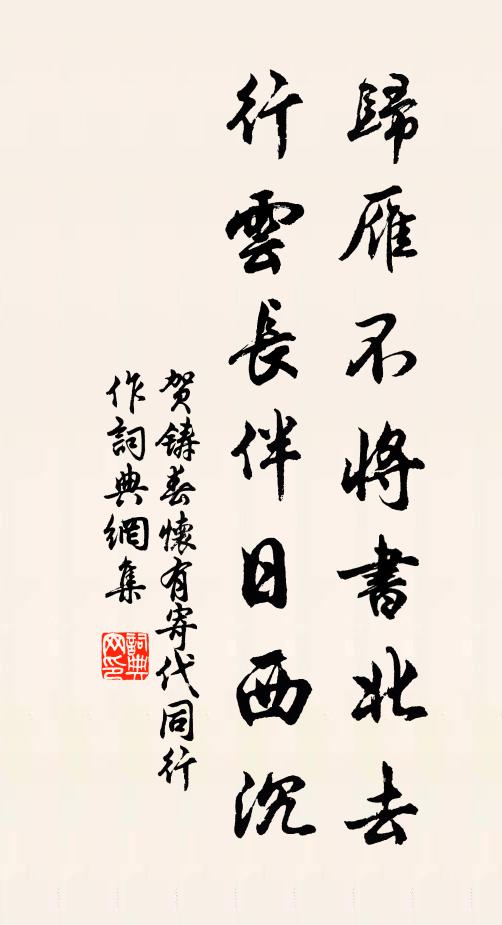 歸雁不將書北去
行雲長伴日西沉
賀鑄春懷有寄代同行
作詞典網集
詞典網印